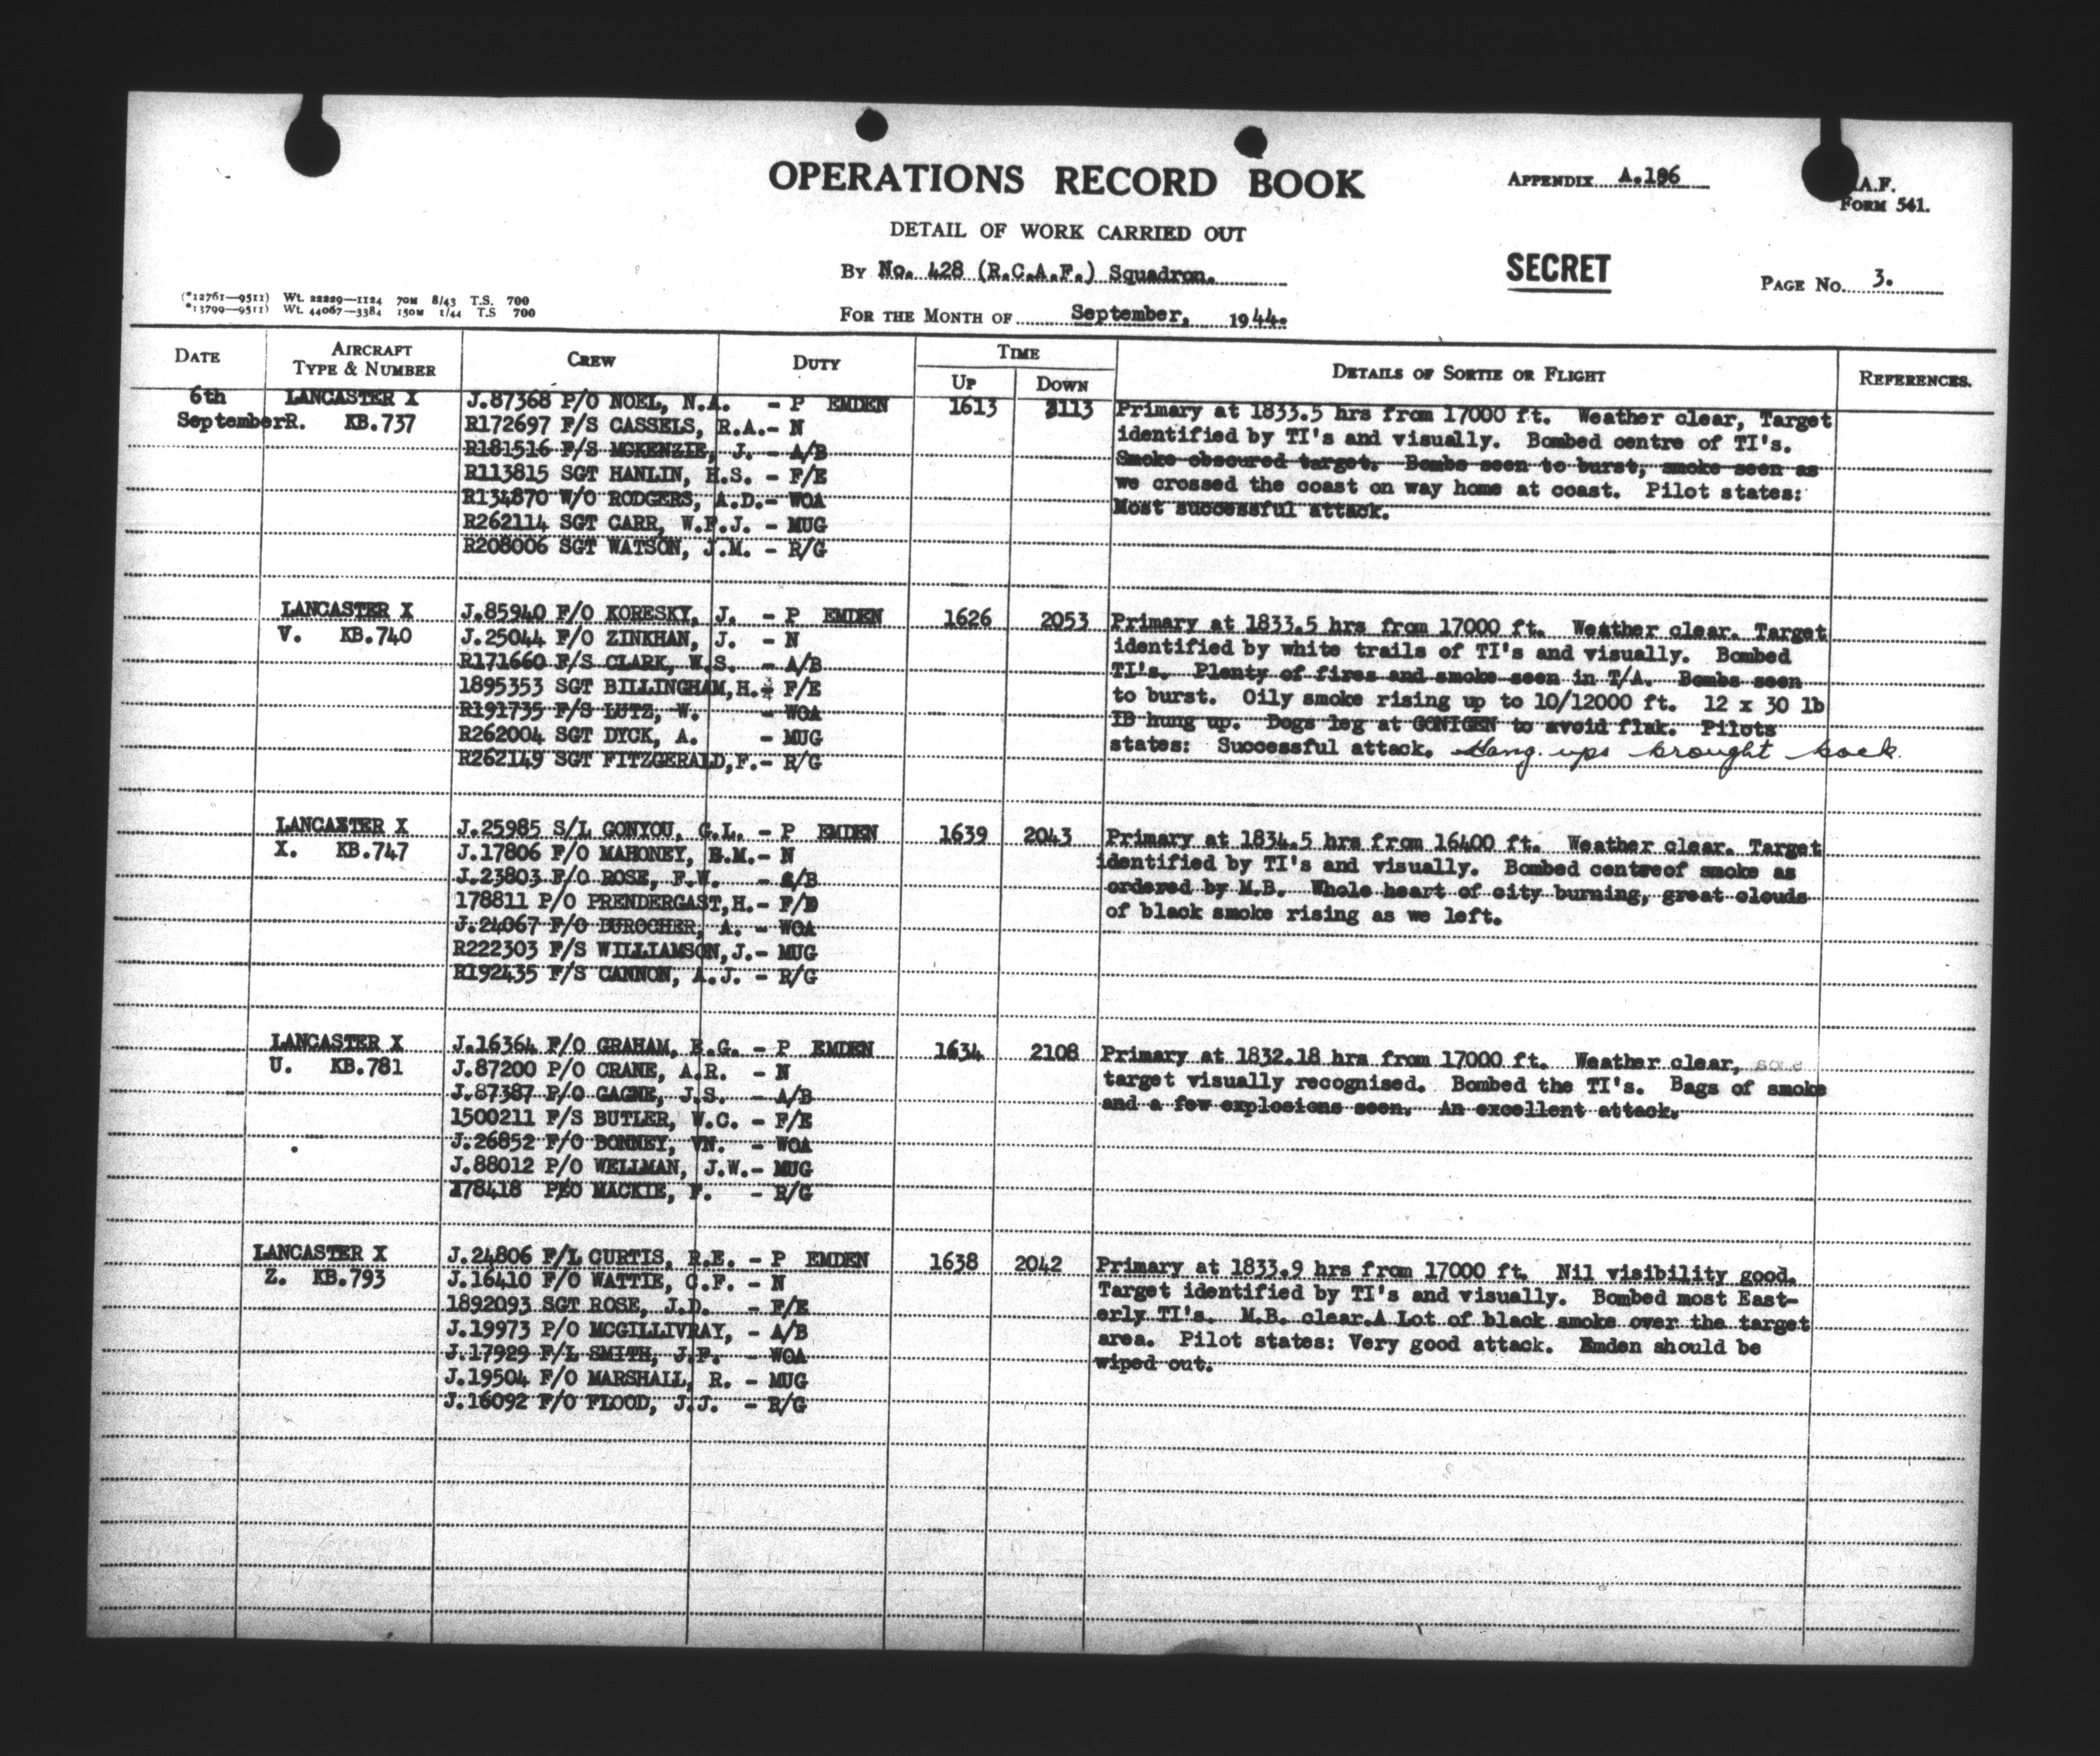 OPERATIONS RECORD BOOK
APPENDIX A.186
A.F.
FORM 541.
DETAIL OF WORK CARRIED OUT
BY No. 428 (R.C.A.F.) Squadron.
SECRET
PAGE No. 3.
(*12761—9511) Wt. 22229—1124 70M 8/43 T.S. 700
*13799—9511) Wt. 44067—3384 150M 1/44 T.S 700
FOR THE MONTH OF September, 1944.
DATE AIRCRAFT TYPE & NUMBER CREW DUTY TIME UP DOWN DETAILS OF SORTIE OR FLIGHT REFERENCES.
6th LANCASTER X J.87368 P/O NOEL, N.A. - P EMDEN 1613 2113 Primary at 1833.5 hrs from 17000 ft. Weather clear, Target
September R. KB.737 R172697 F/S CASSELS, R.A.- N identified by TI's and visually. Bombed centre of TI's.
R181516 F/S MCKENZIE, J. - A/B Smoke obscured target. Bombs seen to burst, smoke seen as
R113815 SGT HANLIN, H.S. - F/E we crossed the coast on way home at coast. Pilot states:
R134870 W/O RODGERS, A.D.- WOA Most successful attack.
R262114 SGT CARR, W.F.J. - MUG
R208006 SGT WATSON, J.M. - R/G
LANCASTER X J.85940 F/O KORESKY, J. - P EMDEN 1626 2053 Primary at 1833.5 hrs from 17000 ft. Weather clear. Target
V. KB.740 J.25044 F/O ZINKHAN, J. - N identified by white trails of TI's and visually. Bombed
R171660 F/S CLARK, W.S. - A/B TI's. Plenty of fires and smoke seen in T/A. Bombs seen
1895353 SGT BILLINGHAM,H. F/E to burst. Oily smoke rising up to 10/12000 ft. 12 x 30 lb
R191735 F/S LUTZ, W. - WOA IB hung up. Dogs leg at GONIGEN to avoid flak. Pilots
R262004 SGT DYCK, A. - MUG states: Successful attack. Hang ups brought back.
R262149 SGT FITZGERALD,F.- R/G
LANCASTER X J.25985 S/L GONYOU, G.L. - P EMDEN 1639 2043 Primary at 1834.5 hrs from 16400 ft. Weather clear. Target
X. KB.747 J.17806 F/O MAHONEY, B.M.- N identified by TI's and visually. Bombed centreof smoke as
J.23803 F/O ROSE, F.W. - A/B ordered by M.B. Whole heart of city burning, great clouds
178811 P/O PRENDERGAST,H.- F/E of black smoke rising as we left.
J.24067 F/O DUROCHER, A. - WOA
R222303 F/S WILLIAMSON,J.- MUG
R192435 F/S CANNON, A.J. - R/G
LANCASTER X J.16364 F/O GRAHAM, R.G. - P EMDEN 1634 2108 Primary at 1832.18 hrs from 17000 ft. Weather clear, some
U. KB.781 J.87200 P/O CRANE, A.R. - N target visually recognised. Bombed the TI's. Bags of smoke
J.87387 P/O GAGNE, J.S. - A/B and a few explosions seen. An excellent attack.
1500211 F/S BUTLER, W.C. - F/E
J.26852 F/O BONNEY, VN. - WOA
J.88012 P/O WELLMAN, J.W.- MUG
178418 P/O MACKIE, F. - R/G
LANCASTER X J.24806 F/L CURTIS, R.E. - P EMDEN 1638 2042 Primary at 1833.9 hrs from 17000 ft. Nil visibility good.
Z. KB.793 J.16410 F/O WATTIE, C.F. - N Target identified by TI's and visually. Bombed most East-
1892093 SGT ROSE, J.D. - F/E erly TI's. M.B. clear.A Lot of black smoke over the target
J.19973 P/O MCGILLIVRAY, - A/B area. Pilot states: Very good attack. Emden should be
J.17929 F/L SMITH, J.F. - WOA wiped out.
J.19504 F/O MARSHALL, R. - MUG
J.16092 F/O FLOOD, J.J. - R/G